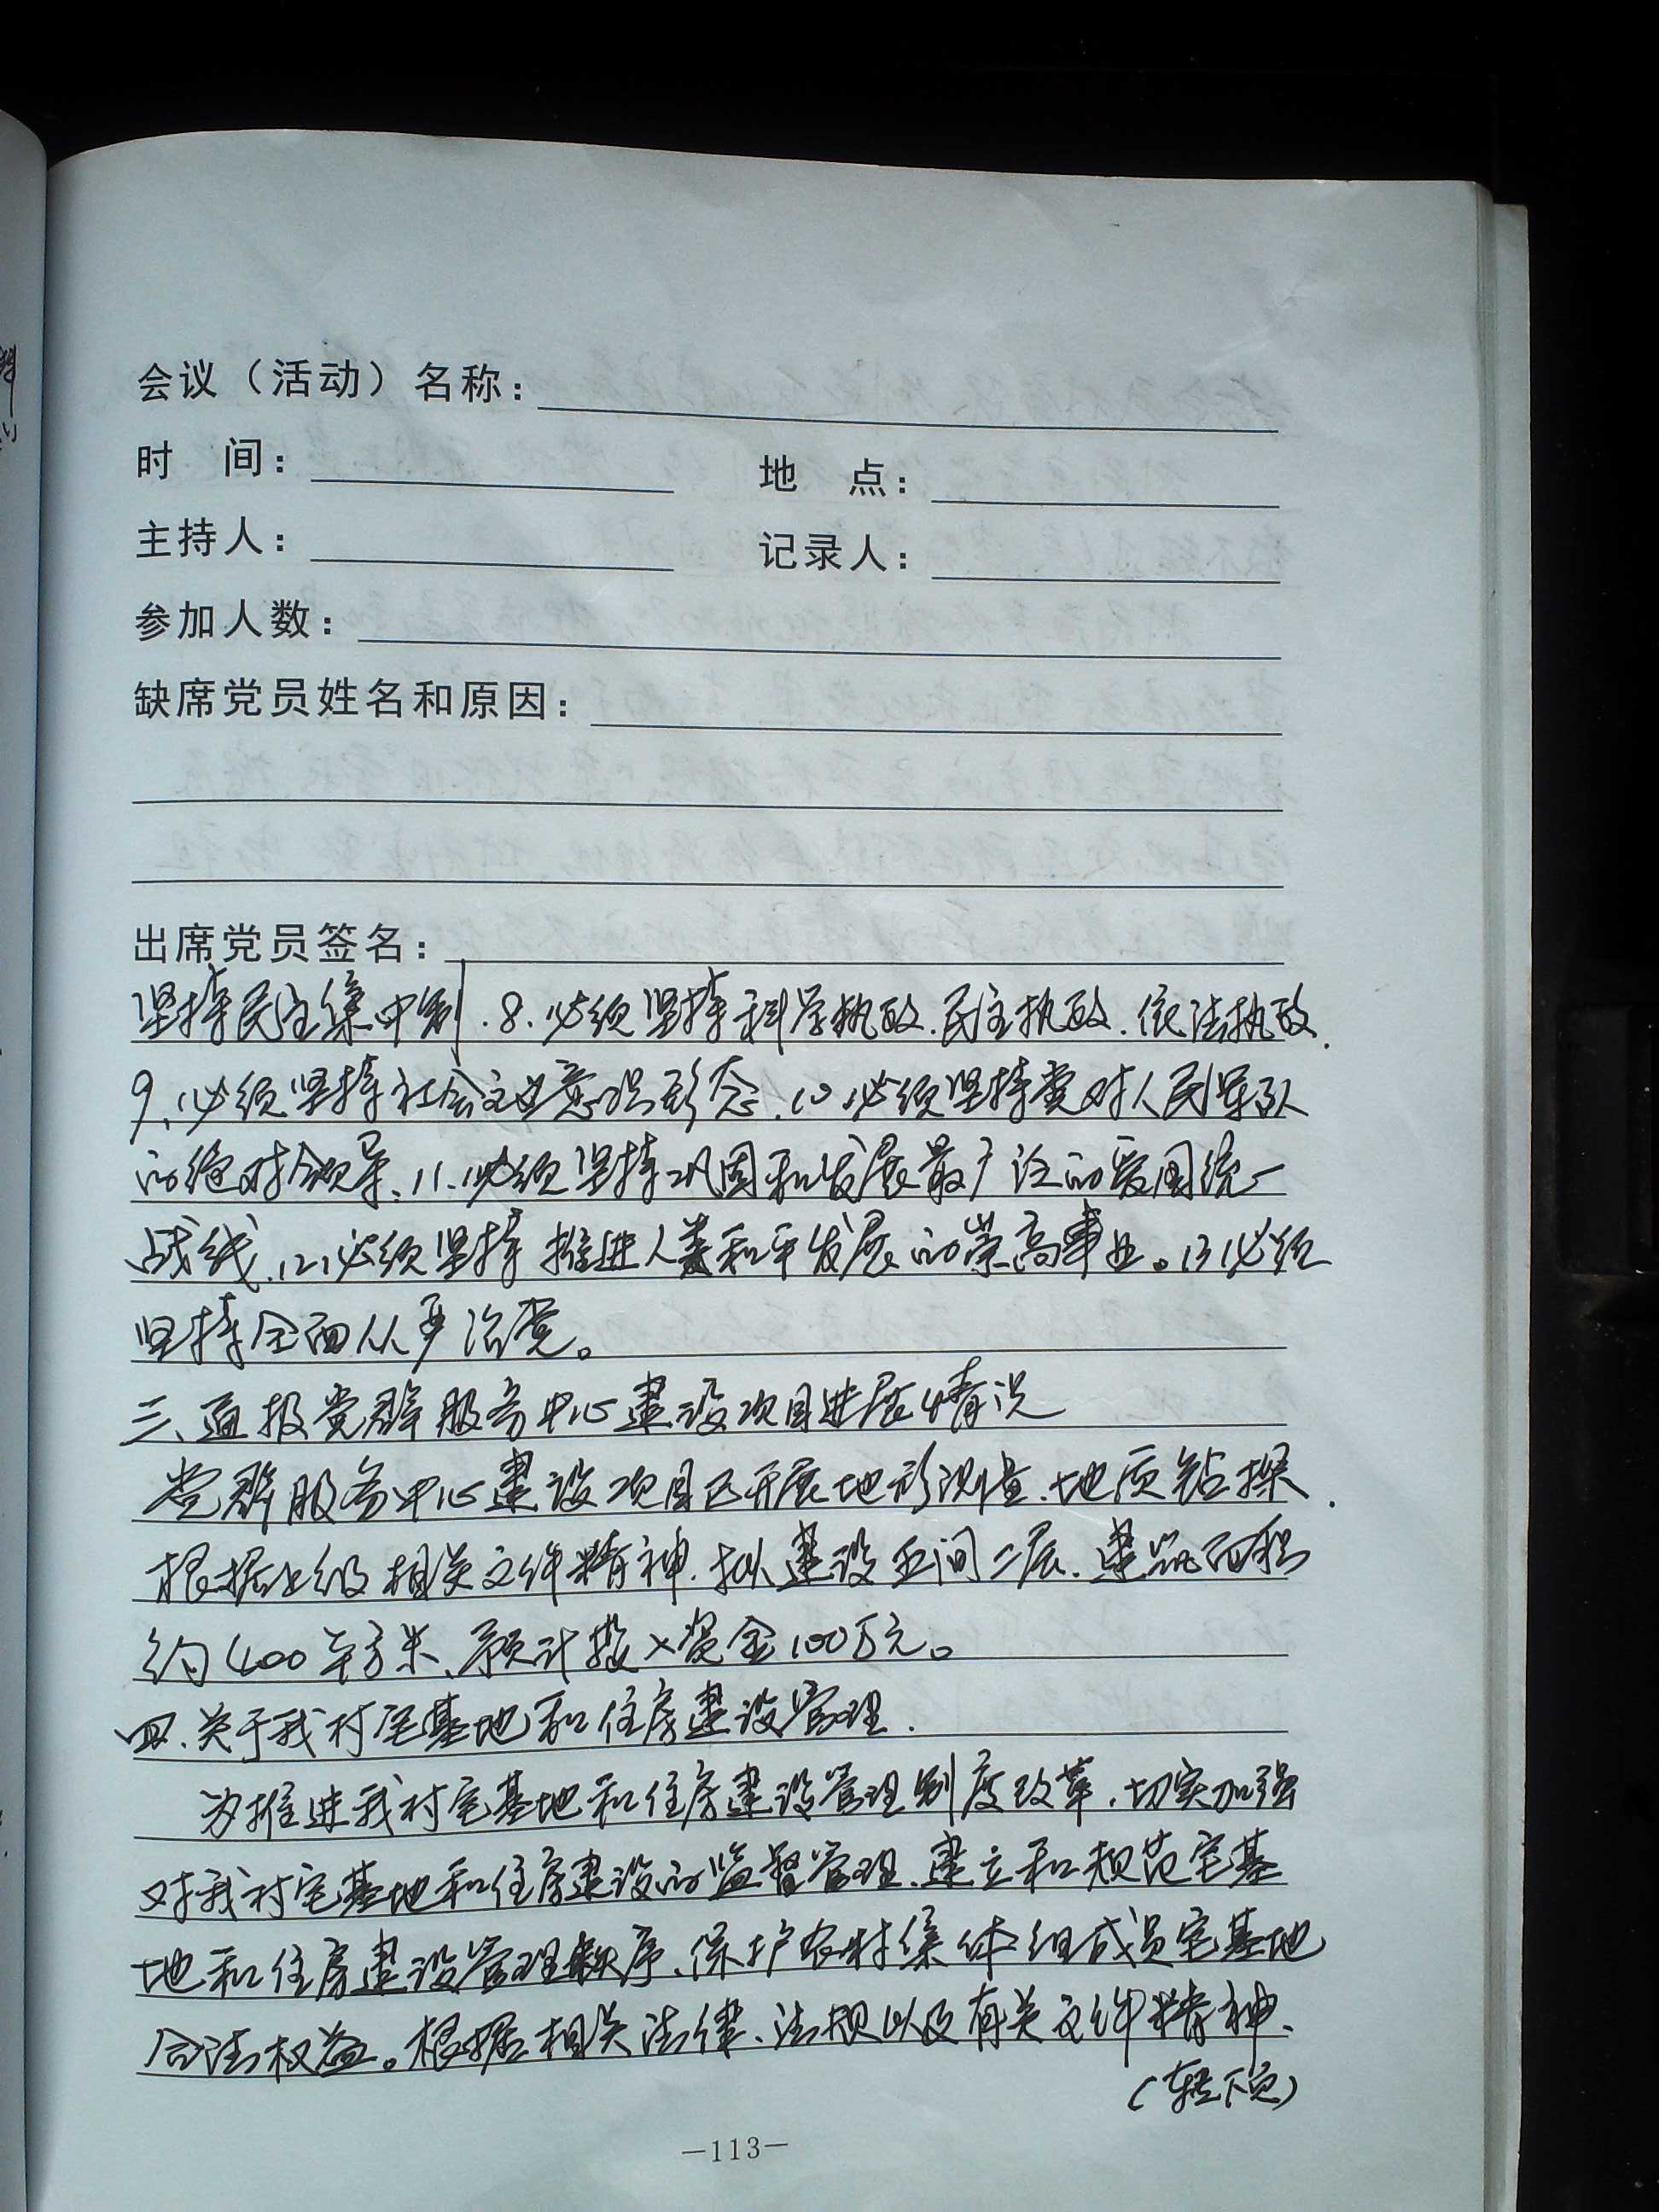 会议（活动）名称：
时　间：　地　点：
主持人：　记录人：
参加人数：
缺席党员姓名和原因：
出席党员签名：
坚持民主集中制.8、必须坚持科学执政.民主执政.依法执政.
9、必须坚持社会主义意识形态.10必须坚持党对人民军队
的绝对领导、11、必须坚持巩固和发展最广泛的爱国统一
战线.12必须坚持推进人类和平发展的崇高事业。13必须
坚持全面从严治党。
三、通报党群服务中心建设项目进展情况
党群服务中心建设项目已开展地形测量.地质钻探.
根据上级相关文件精神.拟建设五间二层.建筑面积
约400平方米、预计投入资金100万元。
四、关于我村宅基地和住房建设管理.
为推进我村宅基地和住房建设管理制度改革.切实加强
对我村宅基地和住房建设的监督管理.建立和规范宅基
地和住房建设管理秩序.保护农村集体组成员宅基地
合法权益。根据相关法律、法规以及有关文件精神、
(转下页)
—113—